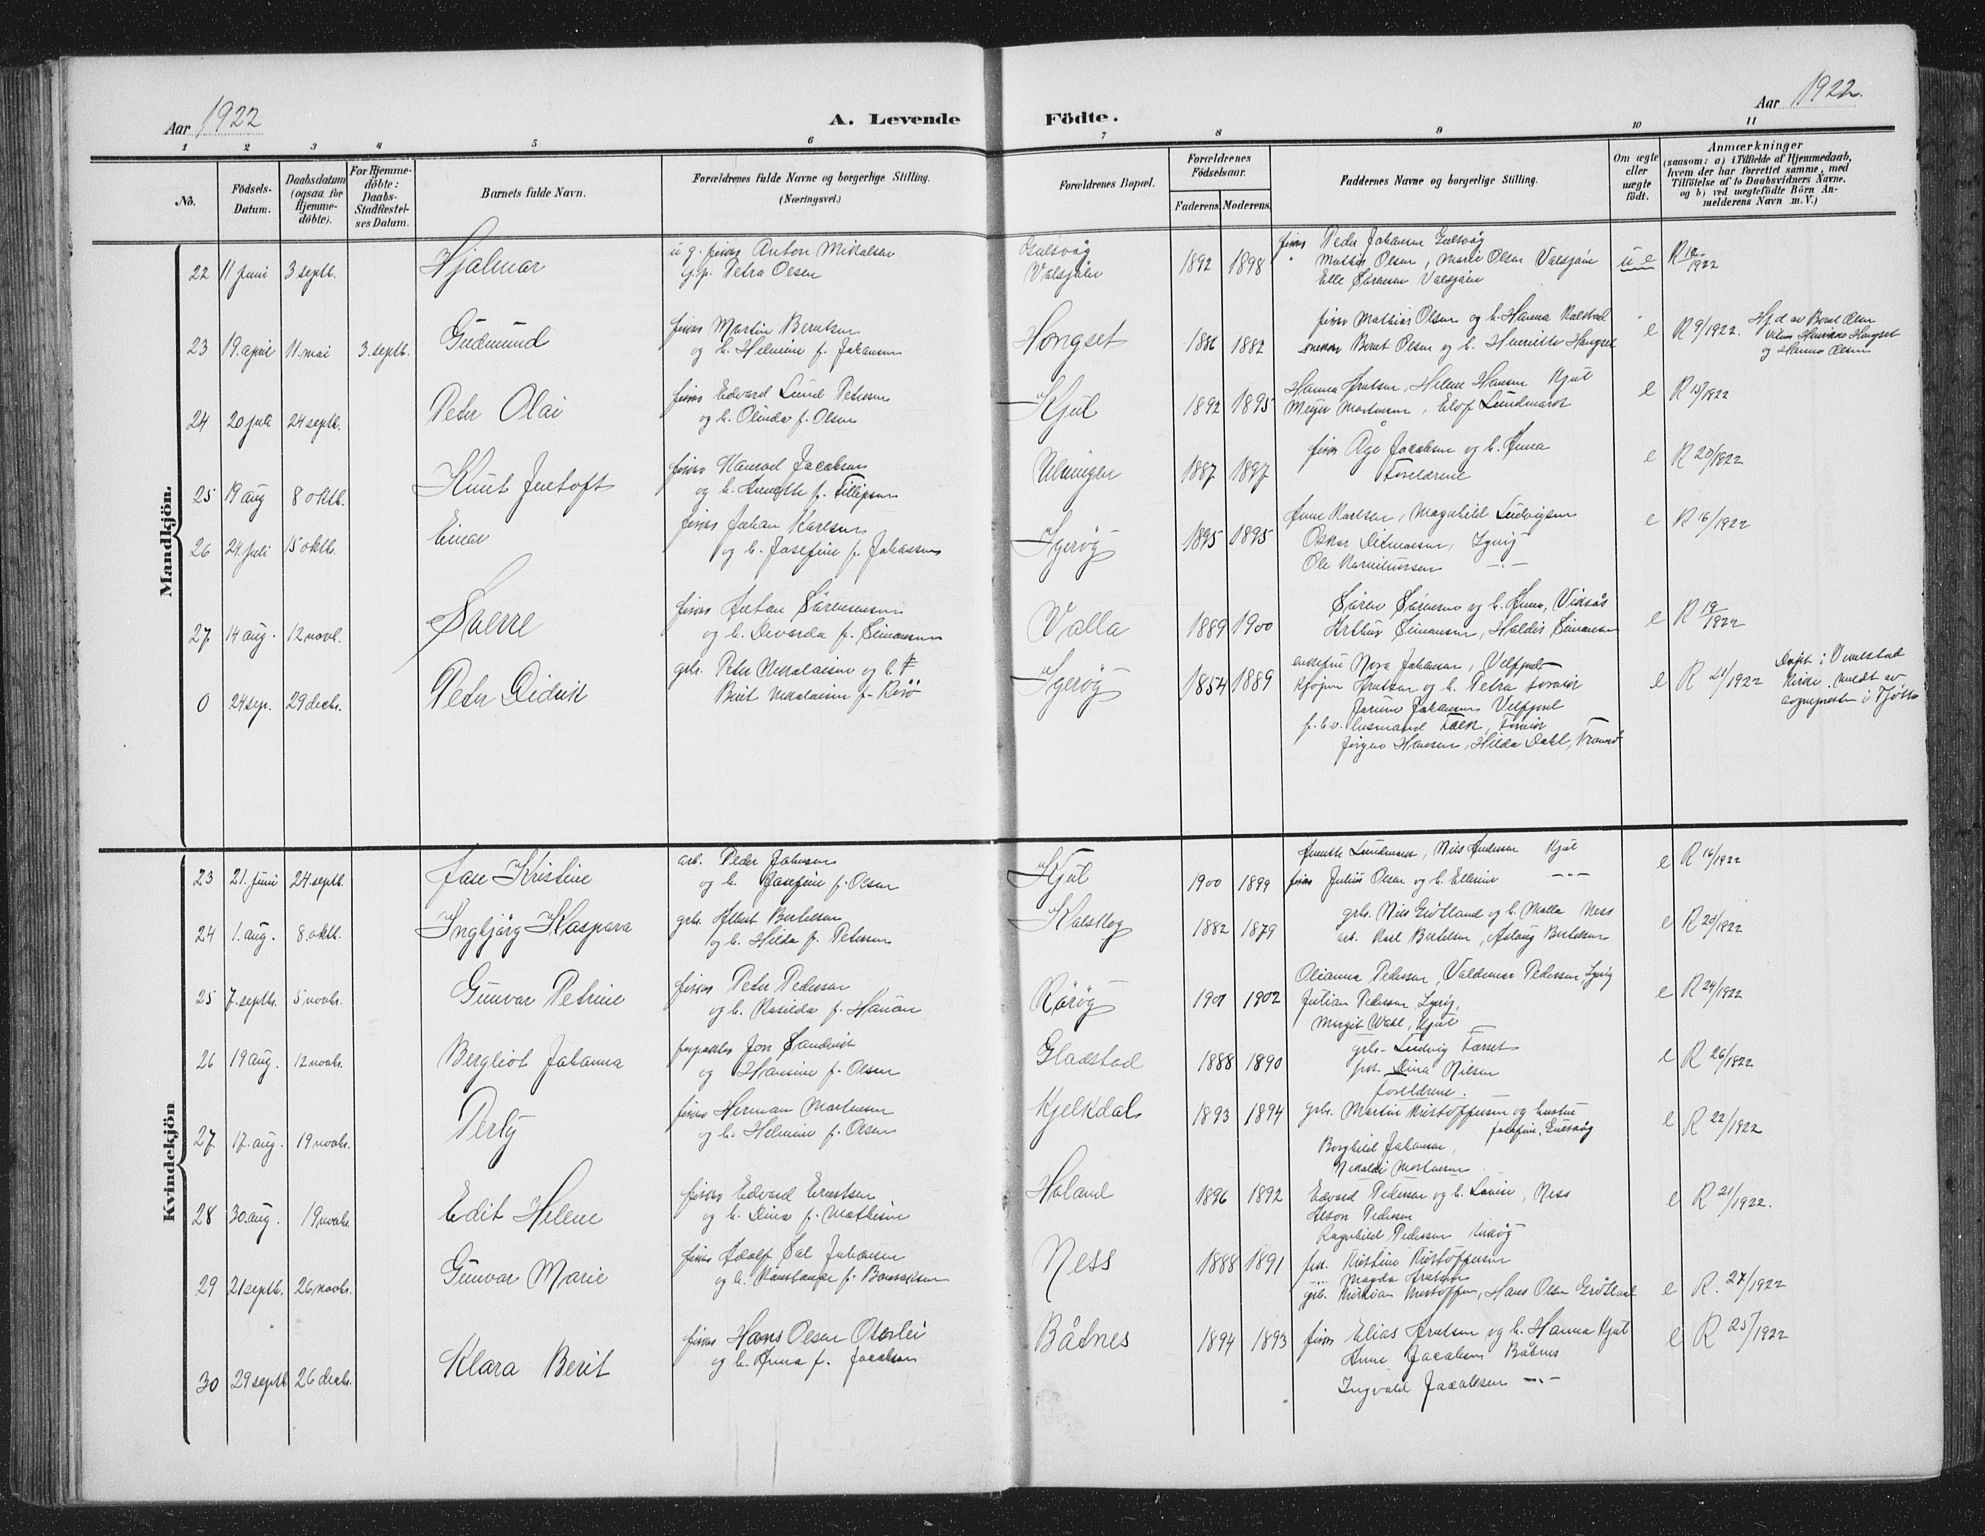 Aar 1922
A. Levende Födte.
Aar 1922.
1 2 3 4 5 6 7 8 9 10 11
No.
Födsels-
Datum.
Daabsdatum
(ogsaa for
Hjemme-
döbte).
For Hjemme-
döbte:
Daabs-
Stadfæstel-
ses Datum.
Barnets fulde Navn.
Forældrenes fulde Navne og borgerlige Stilling.
(Næringsvei.)
Forældrenes Bopæl.
Forældrenes
Födselsaar.
Faderens. Moderens.
Faddernes Navne og borgerlige Stilling.
Om ægte
eller
uægte
födt.
Anmærkninger
(saasom: a) i Tilfælde af Hjemmedaab,
hvem der har forrettet samme, med
Tilföielse af to Daabsvidners Navne.
og b) ved uægtefödte Börn An-
melderens Navn m. V.)
Mandkjön.
22 11 juni 3 septb. Hjalmar
u g. Anton Mikalsen
g.p. Petra Olsen
Valsjöen 1892 1898
Peder Johansen
Olsen, Marie Olsen Valsjöen
Elle Sörensen Valsjöen
u e R 1922
23 19. april 11. mai 3. septb. Gudmund
Martin Berntsen
og h. Helmine f. Johansen
Hongset 1886 1882
Mathias Olsen og h. Hanna
Berut Olsen og h. Henriette Hongset
e R 9/1922. Hjd av Berut Olsen
Hongset
og Hanna Olsen
24 20 juli 24 septb. Peder Olai
Edvard Lund Pedersen
og h. Olinda f. Olsen
Kjul 1892 1895
Hanna Knutsen, Helene Hansen Kjul
Meyer Martinsen, Elof Lundmark
e R 15/1922
25 19 aug 8 oktb. Knut Jentoft
Jacobsen
og h. f. Fillipsen
Ulvingen 1887 1897
Åge Jacobsen og h. Anna
Forældrene
e R 20/1922
26 24. juli 15 oktb. Einar
Johan Karlsen
og h. Josefine f. Johansen
1895 1895
Anne Karlsen, Magnhild Ludvigsen
Oskar Ditmarsen,
Ole
e R 16/1922
27 14 aug. 12 novb. Sverre
Anton Sörensen
og h. Devarda f. Simonsen
Valla 1889 1900
Sören Sörensen og h. Anna, Viksås
Arthur Simonsen, Haldis Simonsen
e R 19/1922
0 24 sep. 29 decb. Peder Didrik
grb. Peder Nikolaisen og h.
Berit Nikolaisen f. Risö
1854 1889
Nora Johansen, Velfjord
Knutsen og h. Petra
Johansen Velfjord
f. h.v. husmand Falk,
Jörgen Hansen, Hilda Dahl, Tromsö
e R 21/1922 Döpt i Vevelstad
kirke. meldt av
sogneprester i Tjötta
Kvindekjön
23 21. juni 24. septb. Jase Kristine
arb. Peder Johnsen
og h. Josefine f. Olsen
Kjul 1900 1899
Annette Lundmark, Nils Andersen Kjul
Julius Olsen og h. Elleine
e R 16/1922
24 1. aug. 8. oktb. Ingbjörg Kaspara
grb. Albert Bertelsen
og h. Hilda f. Petersen
Kalskog 1882 1879
grb. Nils Grötland og h. Malla Ness
arb. Karl Bertelsen, Aslaug Bertelsen
e R 20/1922
25 7. septb. 5 novb. Gunvor Petrine
Peder Pedersen
og h. Kasilda f. Hanön
Rörög 1901 1902
Olianna Pedersen, Valdemar Pedersen,
Julian Pedersen
Margit Wahl, Kjul
e R 24/1922
26 19 aug. 12 novb. Bergliot Johanna
Jon Sandvik
og Hansine f. Olsen
Gladstad 1888 1890
grb. Ludvig Forset
frk. Dina Nilsen
foreldrene.
e R 26/1922
27 17. aug. 19 novb. Perly
Herman Martinsen
og h. Helmine f. Olsen
Kjelkdal 1893 1894
grb. Martin Kristoffersen og hustru
Josefine,
Borghild Johansen,
Nikolai Martinsen
e R 22/1922
28 30. aug. 19 novb. Edit Helene
Edvard Erentsen
og h. Dina f. Mathisen
Holand 1896 1892
Edvard Pedersen og h. Lovise, Ness
Alson Pedersen
Ragnhild Pedersen
e R 21/1922.
29 21 septb. 26 novb. Gunvor Marie
Adolf Sal Johansen
og h. Konstanse f.
Ness 1888 1891
frk. Kristine Kristoffersen
Magda Knutsen
grb. Kristian Kristoffersen, Hans Olsen Grötland
e R. 27/1922
30 29 septb 26 decb. Klara Berit
Hans Olsen Oterlei
og h. Anna f. Jacobsen
Båtnes 1894 1893
Elias Knutsen og h. Hanna Kjul
Anne Jacobsen Båtnes
Ingvald Jacobsen
e R 25/1922